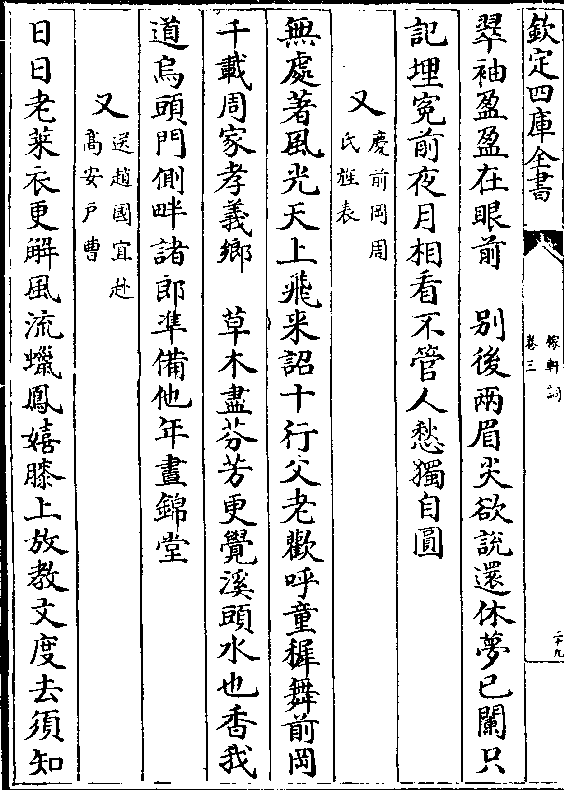 欽定四庫全書
稼軒詞
卷三
翠袖盈盈在眼前　別後兩眉尖欲說還休夢已闌只
記埋寃前夜月相看不管人愁獨自圓
又
慶前岡周
氏旌表
無處著風光天上飛来詔十行父老歡呼童穉舞前岡
千載周家孝義鄉　草木盡芬芳更覺溪頭水也香我
道烏頭門側畔諸郎準備他年晝錦堂
又
送趙國宜赴
高安戶曹
日日老萊衣更解風流蠟鳳嬉膝上放教文度去須知